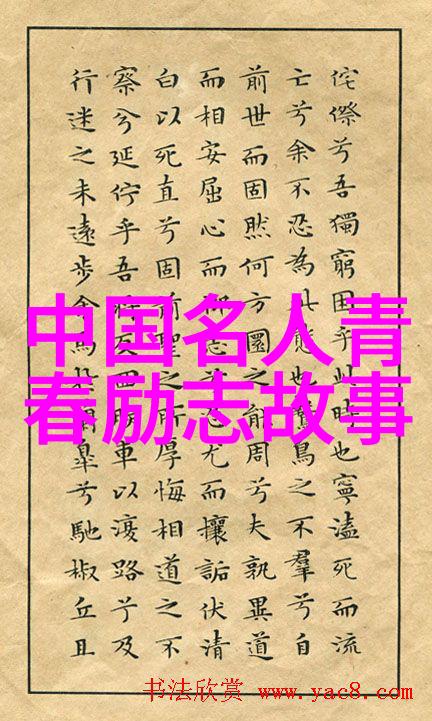 侘傺兮吾獨窮困乎此時也寧溘死而流
亡兮余不忍為此態也鷙鳥之不羣兮自
前世而固然何方圜之能周兮夫孰異道
而相安屈心而抑志兮忍尤而攘詬伏清
白以死直兮固前聖之所厚悔相道之不
察兮延佇乎吾將反回朕車以復路兮及
行迷之未遠步余馬於蘭皋兮馳椒丘且
中国名人青
春励志故事
书法欣赏 www.yac8.com